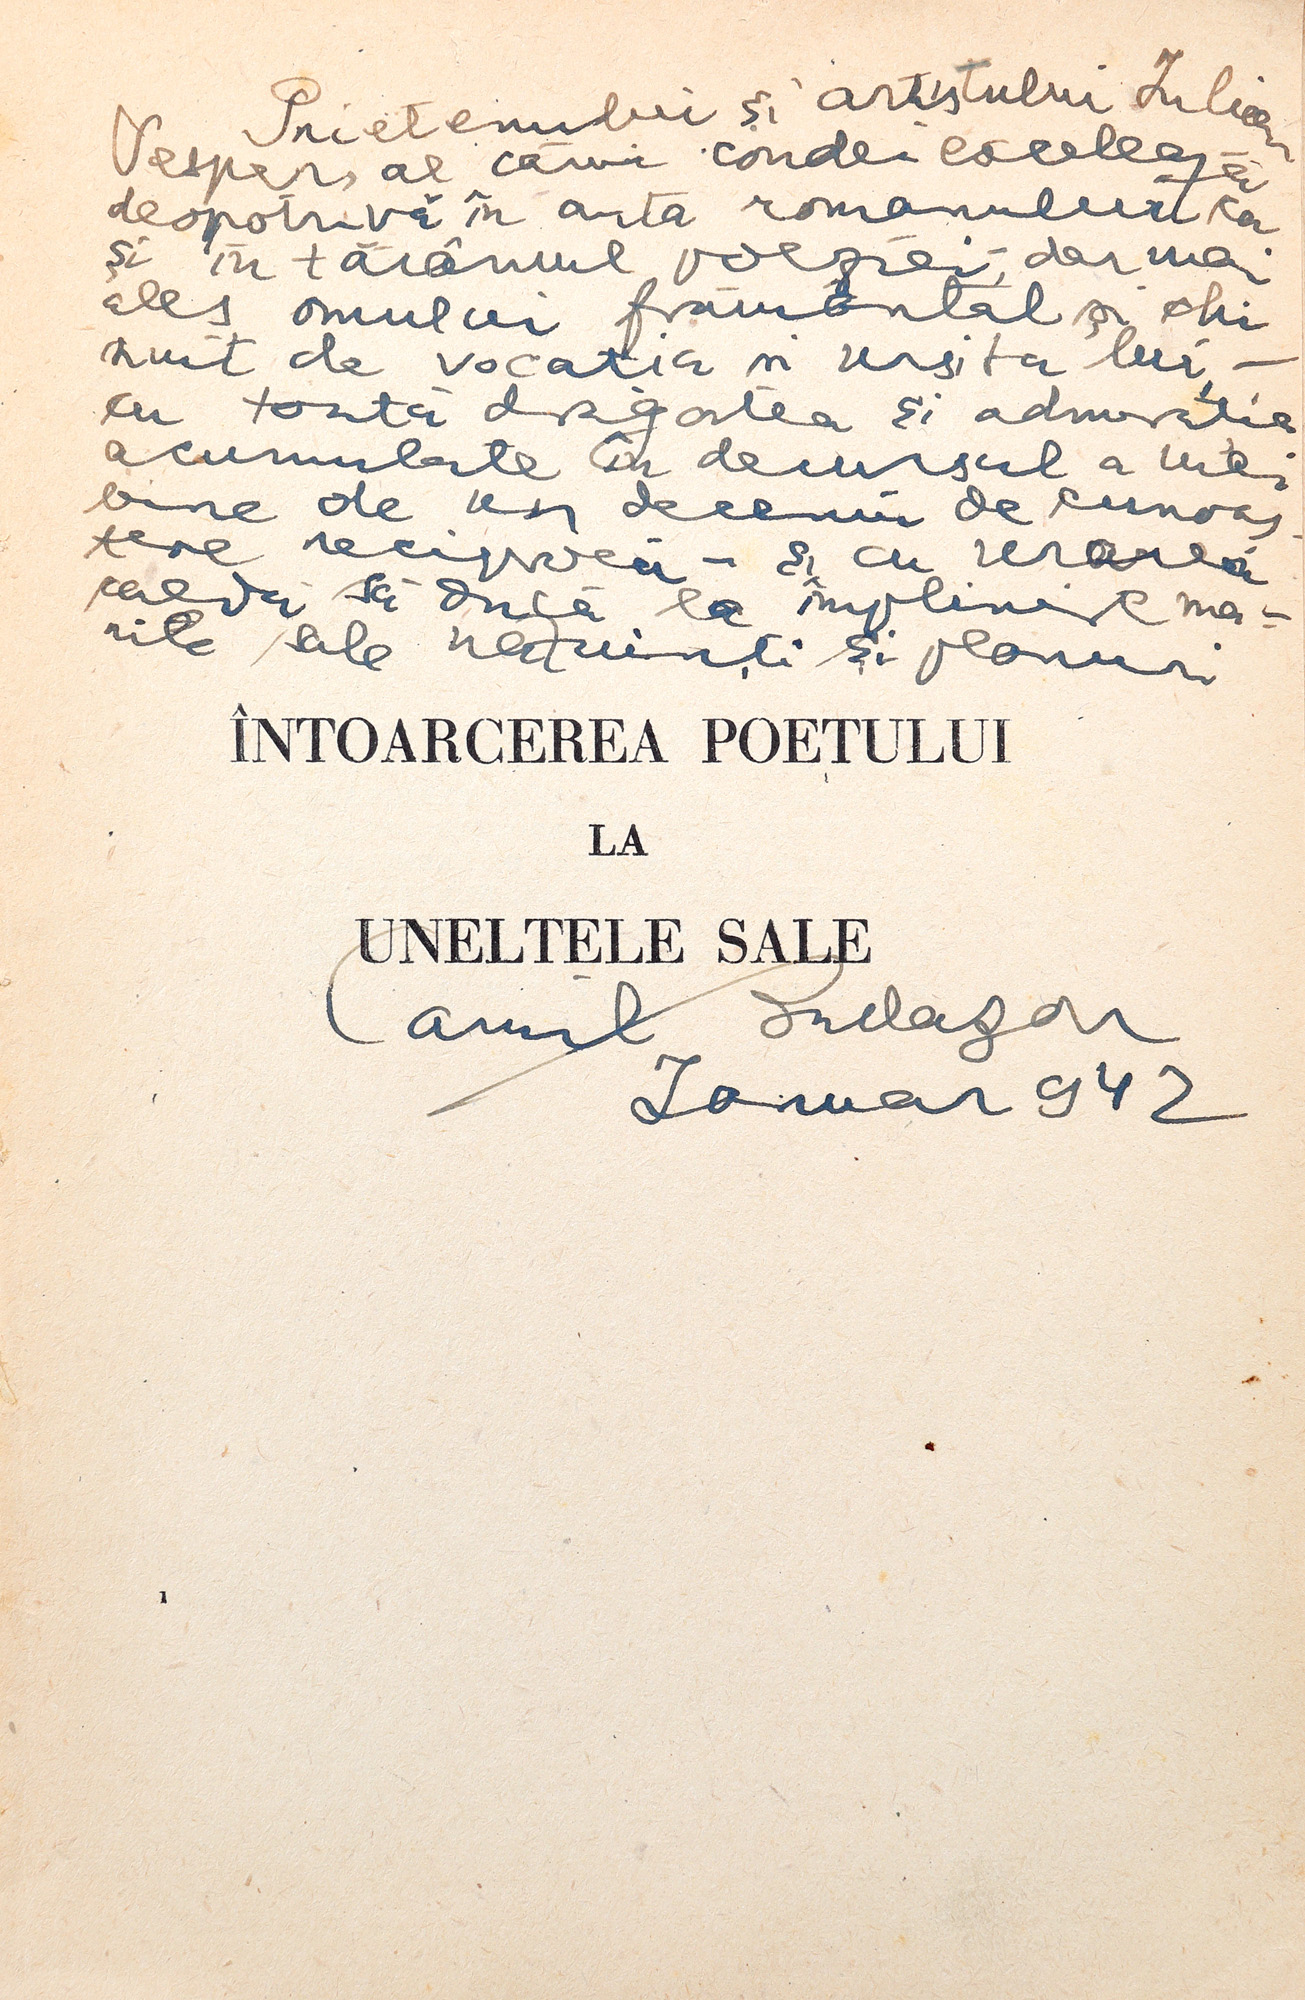 Prietenului și artistului Iulian
Vesper, al cărui condei excelează
deopotrivă în arta romanului ca
și în tărâmul poeziei, dar mai
ales omului frământat și chi
nuit de vocația și ursita lui, —
cu toată dragostea și admirația
acumulate în decursul a mai
bine de un deceniu de cunoaș-
tere reciprocă — și cu urarea
caldă să ducă la împlinire ma-
rile sale năzuinți și planuri
ÎNTOARCEREA POETULUI
LA
UNELTELE SALE
Camil Baltazar
Ianuar 942
1